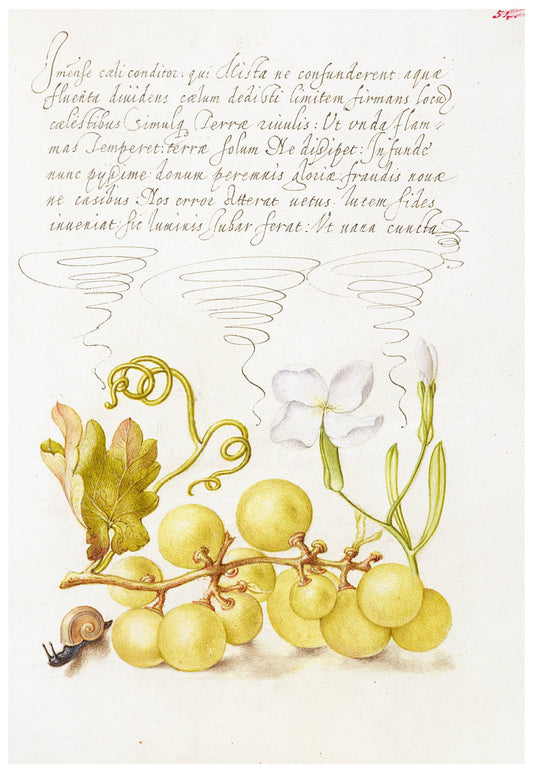 51.
Imense cæli conditor: qui Mista ne confunderent aquæ
fluenta diuidens cælum dedisti limitem firmans locũ
cælestibus Simulq Terræ riuulis: Ut vnda flam-
mas Temperet: terræ solum Ne disipet: Infunde
nunc pyssime donum peremnis gloriæ fraudis nouæ
ne casibus Nos error Atterat uetus lucem fides
inueniat: sic luminis Jubar ferat: Ut uana cuncta